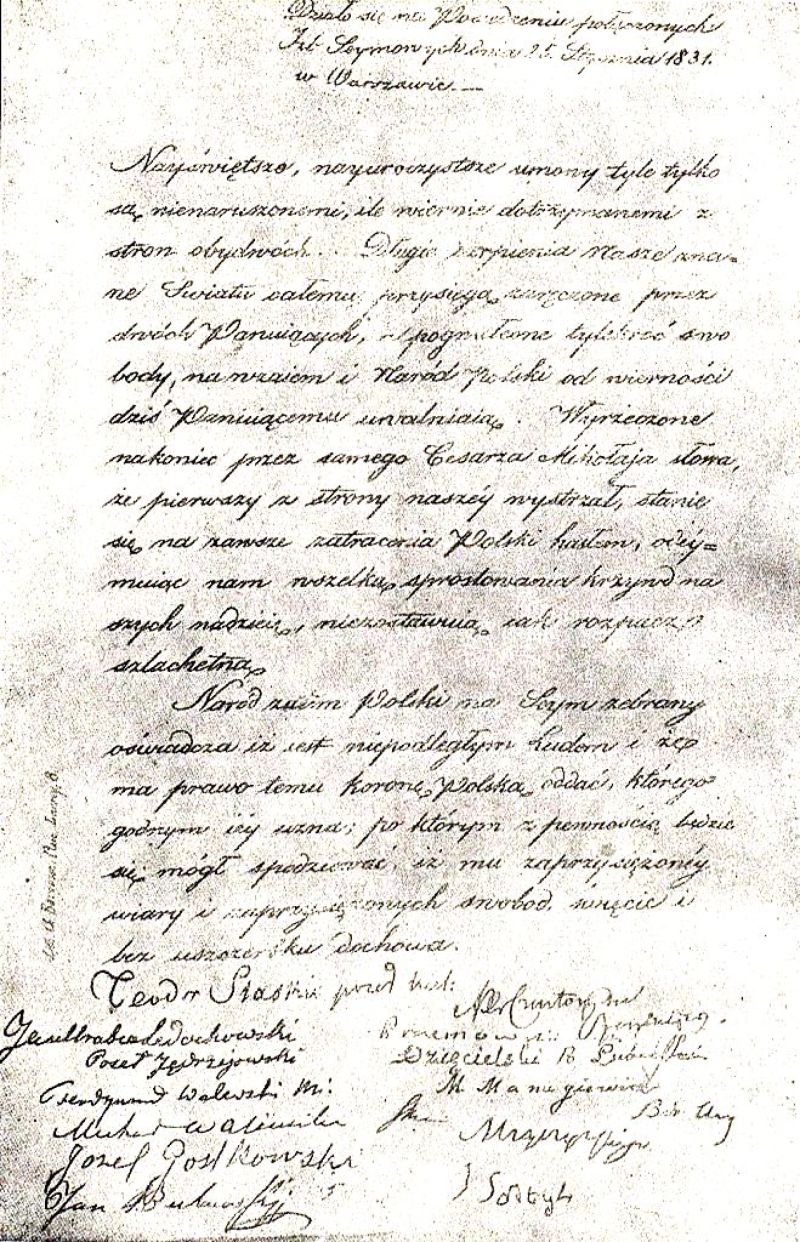 Działo się na Posiedzeniu połączonych
Izb Seymowych dnia 25 Stycznia 1831.
w Warszawie.—
Nayświętsze, nayuroczystsze umowy tyle tylko
są nienaruszonemi, ile wiernie dotrzymanemi z
stron obydwóch. Długie cierpienia Nasze zna=
ne Światu całemu, przysięgą zaręczone przez
dwóch Panuiących, a pogwałcone tylekroć swo
body, nawzaiem i Naród Polski od wierności
dziś Panuiącemu uwalniaią. Wyrzeczone
nakoniec przez samego Cesarza Mikołaja słowa,
że pierwszy z strony naszéy wystrzał, stanie
się na zawsze zatracenia Polski hasłem, odey=
muiąc nam wszelką sprostowania krzywd na
szych nadzieię, niezostawuią iak rozpacz
szlachetną.
Naród zatém Polski na Seym zebrany
oświadcza iż iest niepodległym Ludem i że
ma prawo temu koronę Polską oddać, którego
godnym iéy uzna; po którym z pewnością będzie
się mógł spodziewać, iż mu zaprzysiężonéy
wiary i zaprzysiężonych swobod, święcie i
bez uszczerbku dochowa.
Teodor
Jan Hrabia Ledochowski
Poseł Jędrzejowski
Ferdynand Walewski
Józef Gostkowski
Jan
Dzięcielski
M
J Sołtyk